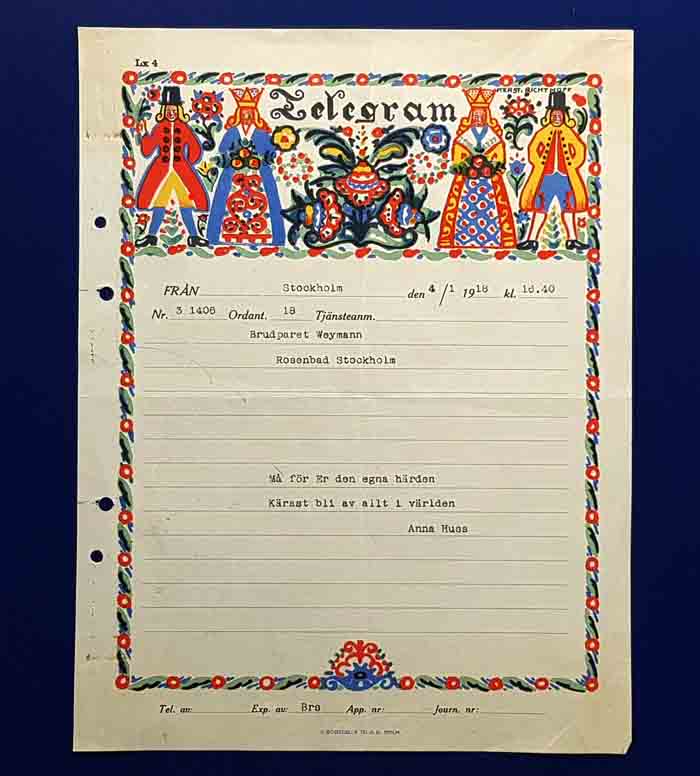 Lx 4
Telegram
FRÅN Stockholm den 4/1 1918 kl. 18.40
Nr. 3 1406 Ordant. 18 Tjänsteanm.
Brudparet Weymann
Rosenbad Stockholm
Må för Er den egna härden
Kärast bli av allt i världen
Anna Huss
Tel. av: Exp. av: Bro App. nr: Journ. nr: